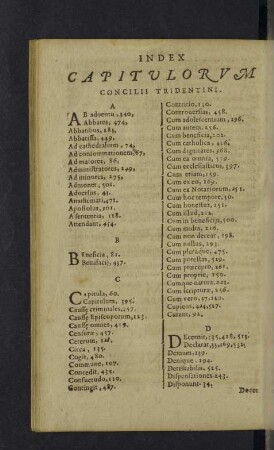 INDEX
CAPITULORVM
CONCILII TRIDENTINI.
A
AB aduentu, 340,
Abbates, 474,
Abbatibus, 183,
Abbatissa, 249.
Ad cathedralem, 74,
Ad maiores, 86,
Administratores, 249,
Ad minores, 275,
Admonet, 501.
Aduersus, 41.
Apostolica, 261.
A sententia, 128.
Attendant, 454.
B
BEneficia, 82.
Bonifacii, 437.
C
CApitula, 60.
Capitulum, 395.
Causæ criminales, 257.
Causæ Episcoporum, 123.
Causæ omnes, 419.
Censuræ, 457.
Ceterum,
Circa, 133.
Cogit, 480.
Commune, 107.
Concedit, 432.
Consuetudo, 110.
Contingit, 487.
Contritio, 130.
Controuersias, 458.
Cum adolescentium, 296.
Cum autem, 256.
Cum beneficia, 202.
Cum catholica, 426,
Cum dignitates, 361.
Cum ex omnis, 239.
Cum ecclesiasticus, 397.
Cum etiam, 159.
Cum ex eo, 189.
Cum ex Notariorum, 251.
Cum hoc tempore, 30.
Cum honestius, 151.
Cum illud, 214.
Cum in beneficijs, 200.
Cum multa, 226.
Cum non deceat, 198.
Cum nullus, 295.
Cum plerique, 475.
Cum potestas, 519.
Cum præceptis, 261.
Cum proprie, 150.
Cumque natura, 225.
Cum scriptura, 256.
Cum vero, 57, 210.
Cupiens, 404, 587.
Curent, 92,
D
DEcernit, 335, 418, 523.
Declarat, 33, 169, 532.
Demum, 139.
Denique, 194.
Detestabilis, 525.
Dispensationes, 243.
Disponunt, 34,
Docet